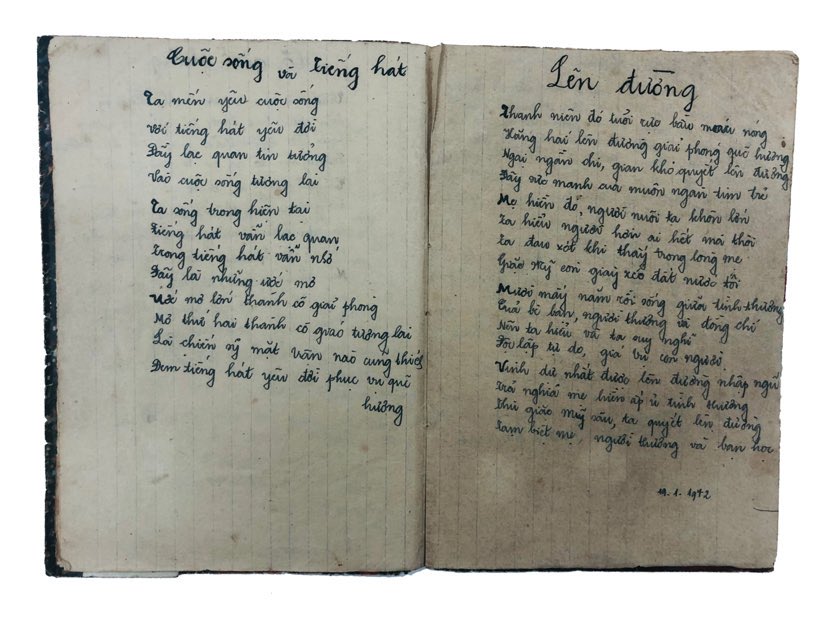 Cuộc sống và tiếng hát
Ta mến yêu cuộc sống
Với tiếng hát yêu đời
Đầy lạc quan tin tưởng
Vào cuộc sống tương lai
Ta sống trong hiện tại
Tiếng hát vẫn lạc quan
Trong tiếng hát vẫn nhớ
Đấy là những ước mơ
Ước mơ lớn thành cô giải phóng
Mơ thứ hai thành cô giáo tương lai
Là chiến sỹ mặt trận nào cũng thích
Đem tiếng hát yêu đời phục vụ quê
hương
Lên đường
Thanh niên đó tuổi rực bầu máu nóng
Hăng hái lên đường giải phóng quê hương
Ngại ngần chi, gian khó quyết lên đường
Đầy sức mạnh của muôn ngàn tim trẻ
Mẹ hiền đó, người nuôi ta khôn lớn
Ta hiểu người hơn ai hết mà thôi
Ta đau xót khi thấy trong lòng mẹ
Giặc Mỹ còn giày xéo đất nước tôi
Mười mấy năm rồi sống giữa tình thương
Của bè bạn, người thương và đồng chí
Nên ta hiểu và ta suy nghĩ
Độc lập tự do, giá trị con người
Vinh dự nhất được lên đường nhập ngũ
Trả nghĩa mẹ hiền ấp ủ tình thương
Thù giặc Mỹ sâu, ta quyết lên đường
Tạm biệt mẹ, người thương và bạn học
19.1.1972